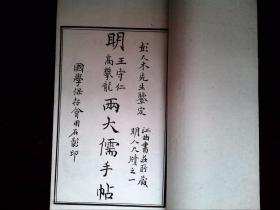 彭大木先生鑒定
江曲書莊所藏
明人尺牘之一
明王守仁高攀龍兩大儒手帖
國學保存會用石影印